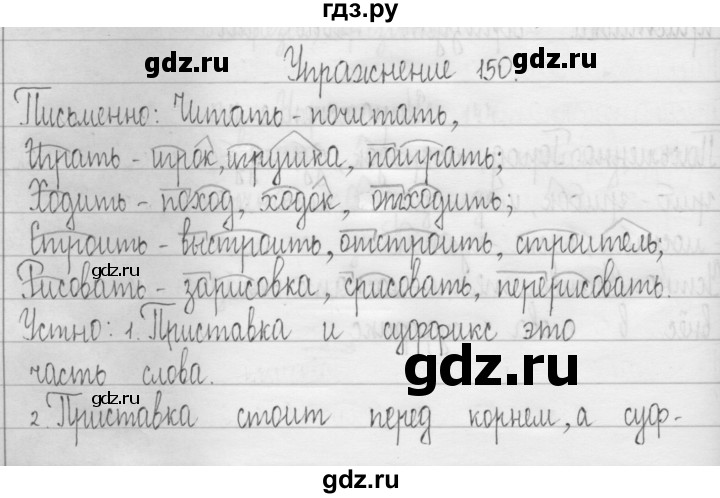 гдз.ру
Упражнение 150.
Письменно: Читать - почитать,
Играть - игрок, игрушка, поиграть;
Ходить - поход, ходок, отходить;
Строить - выстроить, отстроить, строитель;
Рисовать - зарисовка, срисовать, перерисовать.
Устно: 1. Приставка и суффикс это
часть слова.
2. Приставка стоит перед корнем, а суф-
gdz.ru
gdz.ru
gdz.ru
gdz.ru
gdz.ru
gdz.ru
gdz.ru
gdz.ru
gdz.ru